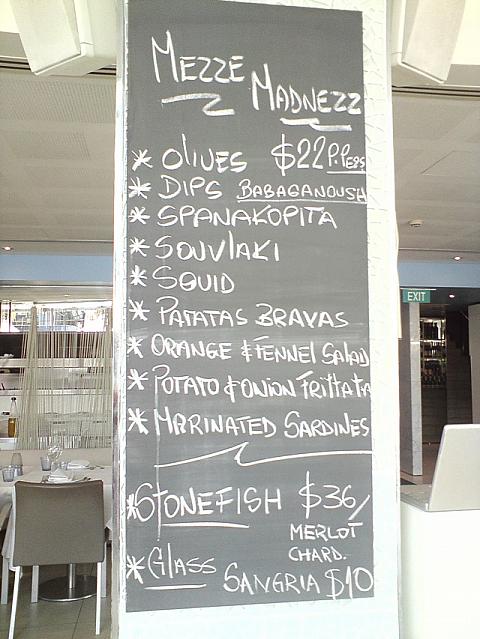 MEZZE
MADNEZZ
* OLIVES $22 P.PERS
* DIPS BABAGANOUSH
* SPANAKOPITA
* SOUVLAKI
* SQUID
* PATATAS BRAVAS
* ORANGE & FENNEL SALAD
* POTATO & ONION FRITTATA
* MARINATED SARDINES
* STONEFISH $36/
MERLOT
CHARD.
* GLASS SANGRIA $10
EXIT